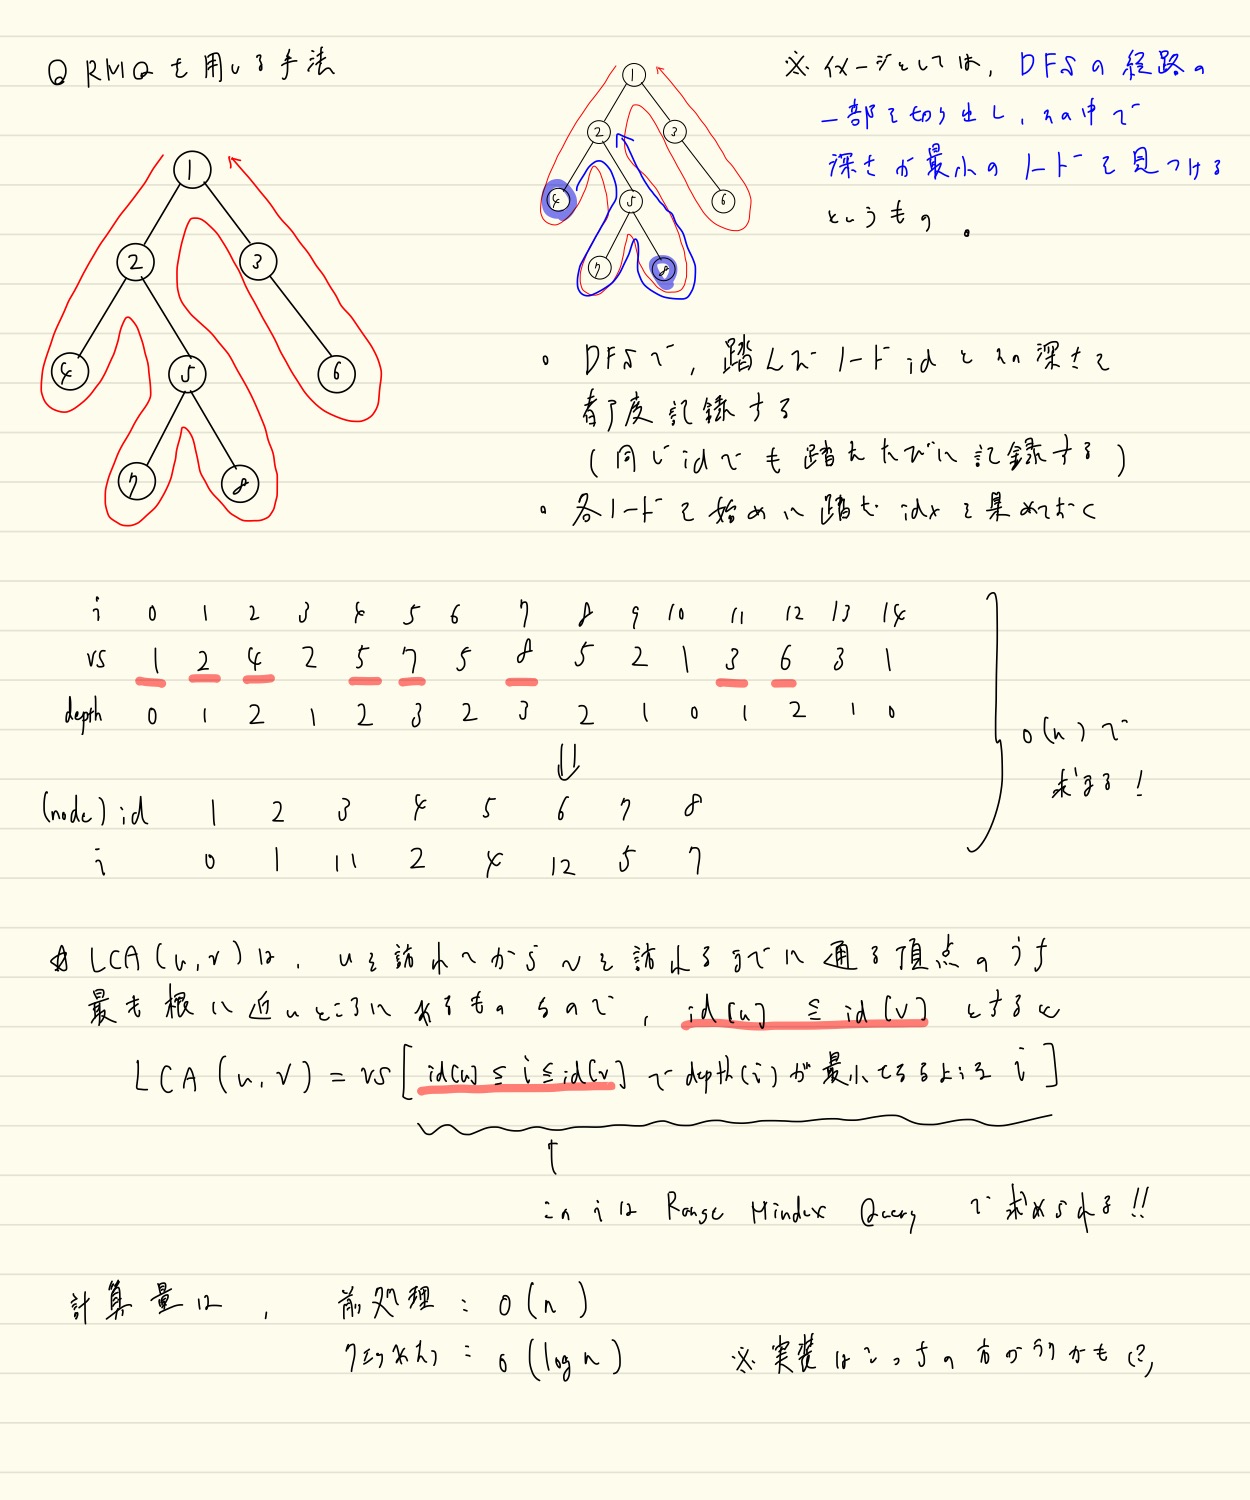 RMQを用いる手法
1
2
3
4
5
6
7
8
1
2
3
4
5
6
7
8
※ イメージとしては, DFSの経路の
一部を切り出し, その中で
深さが最小のノードを見つける
というもの。
・ DFSで, 踏んだノードidとその深さを
都度記録する
(同じidでも踏むたびに記録する)
・ 各ノードを始めに踏むidxを集めておく
i 0 1 2 3 4 5 6 7 8 9 10 11 12 13 14
vs 1 2 4 2 5 7 5 8 5 2 1 3 6 3 1
depth 0 1 2 1 2 3 2 3 2 1 0 1 2 1 0
⇓
O(n)で
求まる!
(node) id 1 2 3 4 5 6 7 8
i 0 1 11 2 4 12 5 7
☆ LCA(u,v)は, uを訪れてからvを訪れるまでに通る頂点のうち
最も根に近いところにあるものなので, id[u] ≦ id[v] とすると
LCA(u,v) = vs[id[u] ≦ i ≦ id[v] で depth(i)が最小となるような i]
↑
このiは Range Mindex Query で求められる!!
計算量は, 前処理 : O(n)
クエリあたり : O(log n)
※ 実装はこっちの方がラクかも(?)